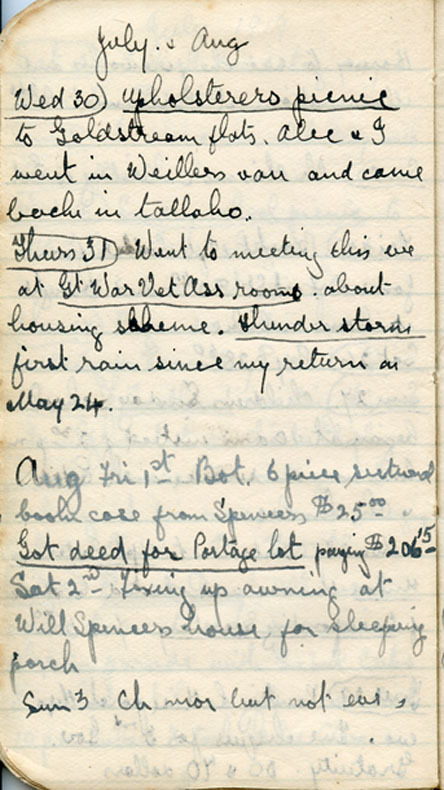 July. & Aug
Wed 30) Upholsterers picnic
to Goldstream flats. Alec & I
went in Weillers van and came
back in tallaho.
Thurs 31) Went to meeting this eve
at Gt War Vet Ass rooms. about
housing scheme. thunder storm
first rain since my return on
May 24.
Aug Fri 1st Bot. 6 piece sectional
book case from Spencers $25.00
Got deed for Portage lot paying $206.15
Sat 2nd Fixing up awning at
Will Spencers house for sleeping
porch
Sun 3 Ch mor but not eve.